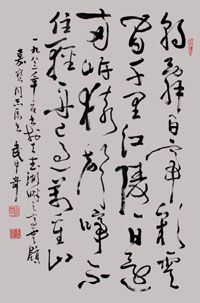 朝辭白帝彩雲
間千里江陵一日還
兩岸猿聲啼不
住輕舟已過萬重山
一九八二年
同志 武中奇